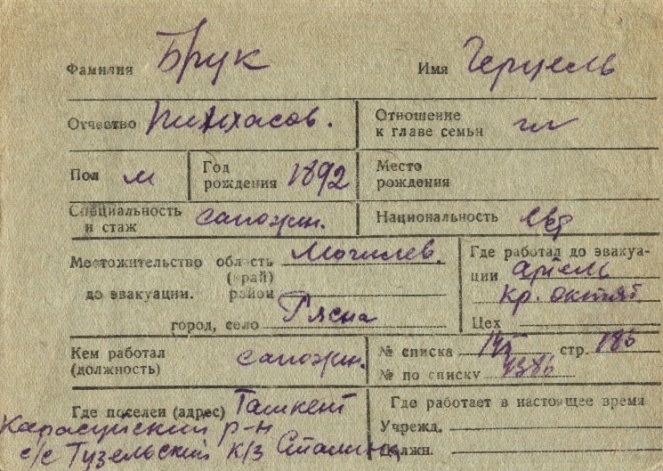 Фамилия Брук Имя Герцель
Отчество Пинхасов. Отношение к главе семьи гл
Пол м Год рождения 1892 Место рождения
Специальность и стаж сапожн. Национальность евр
Местожительство область (край) Могилев. Где работал до эвакуации артель
до эвакуации. район Кр. октяб
город, село Рясна Цех
Кем работал (должность) сапожн. № списка стр. 186
№ по списку
Где поселен (адрес) Ташкент Где работает в настоящее время
Карасуйский р-н Учрежд.
с/с Тузельский к/з Сталина Должн.